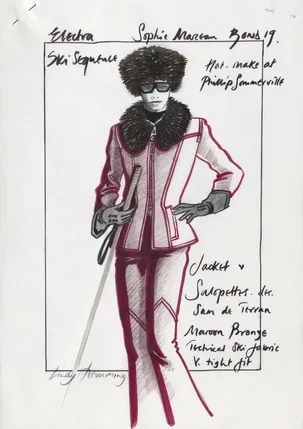 Electra Sophie Marceau Bond 19.
Ski Sequence
Hat. make at
Phillip Sommerville
Jacket &
Salopettes. des.
Sam de Terran
Maroon Bronze
Technical Ski fabric
V. tight fit
Lindy Hemming